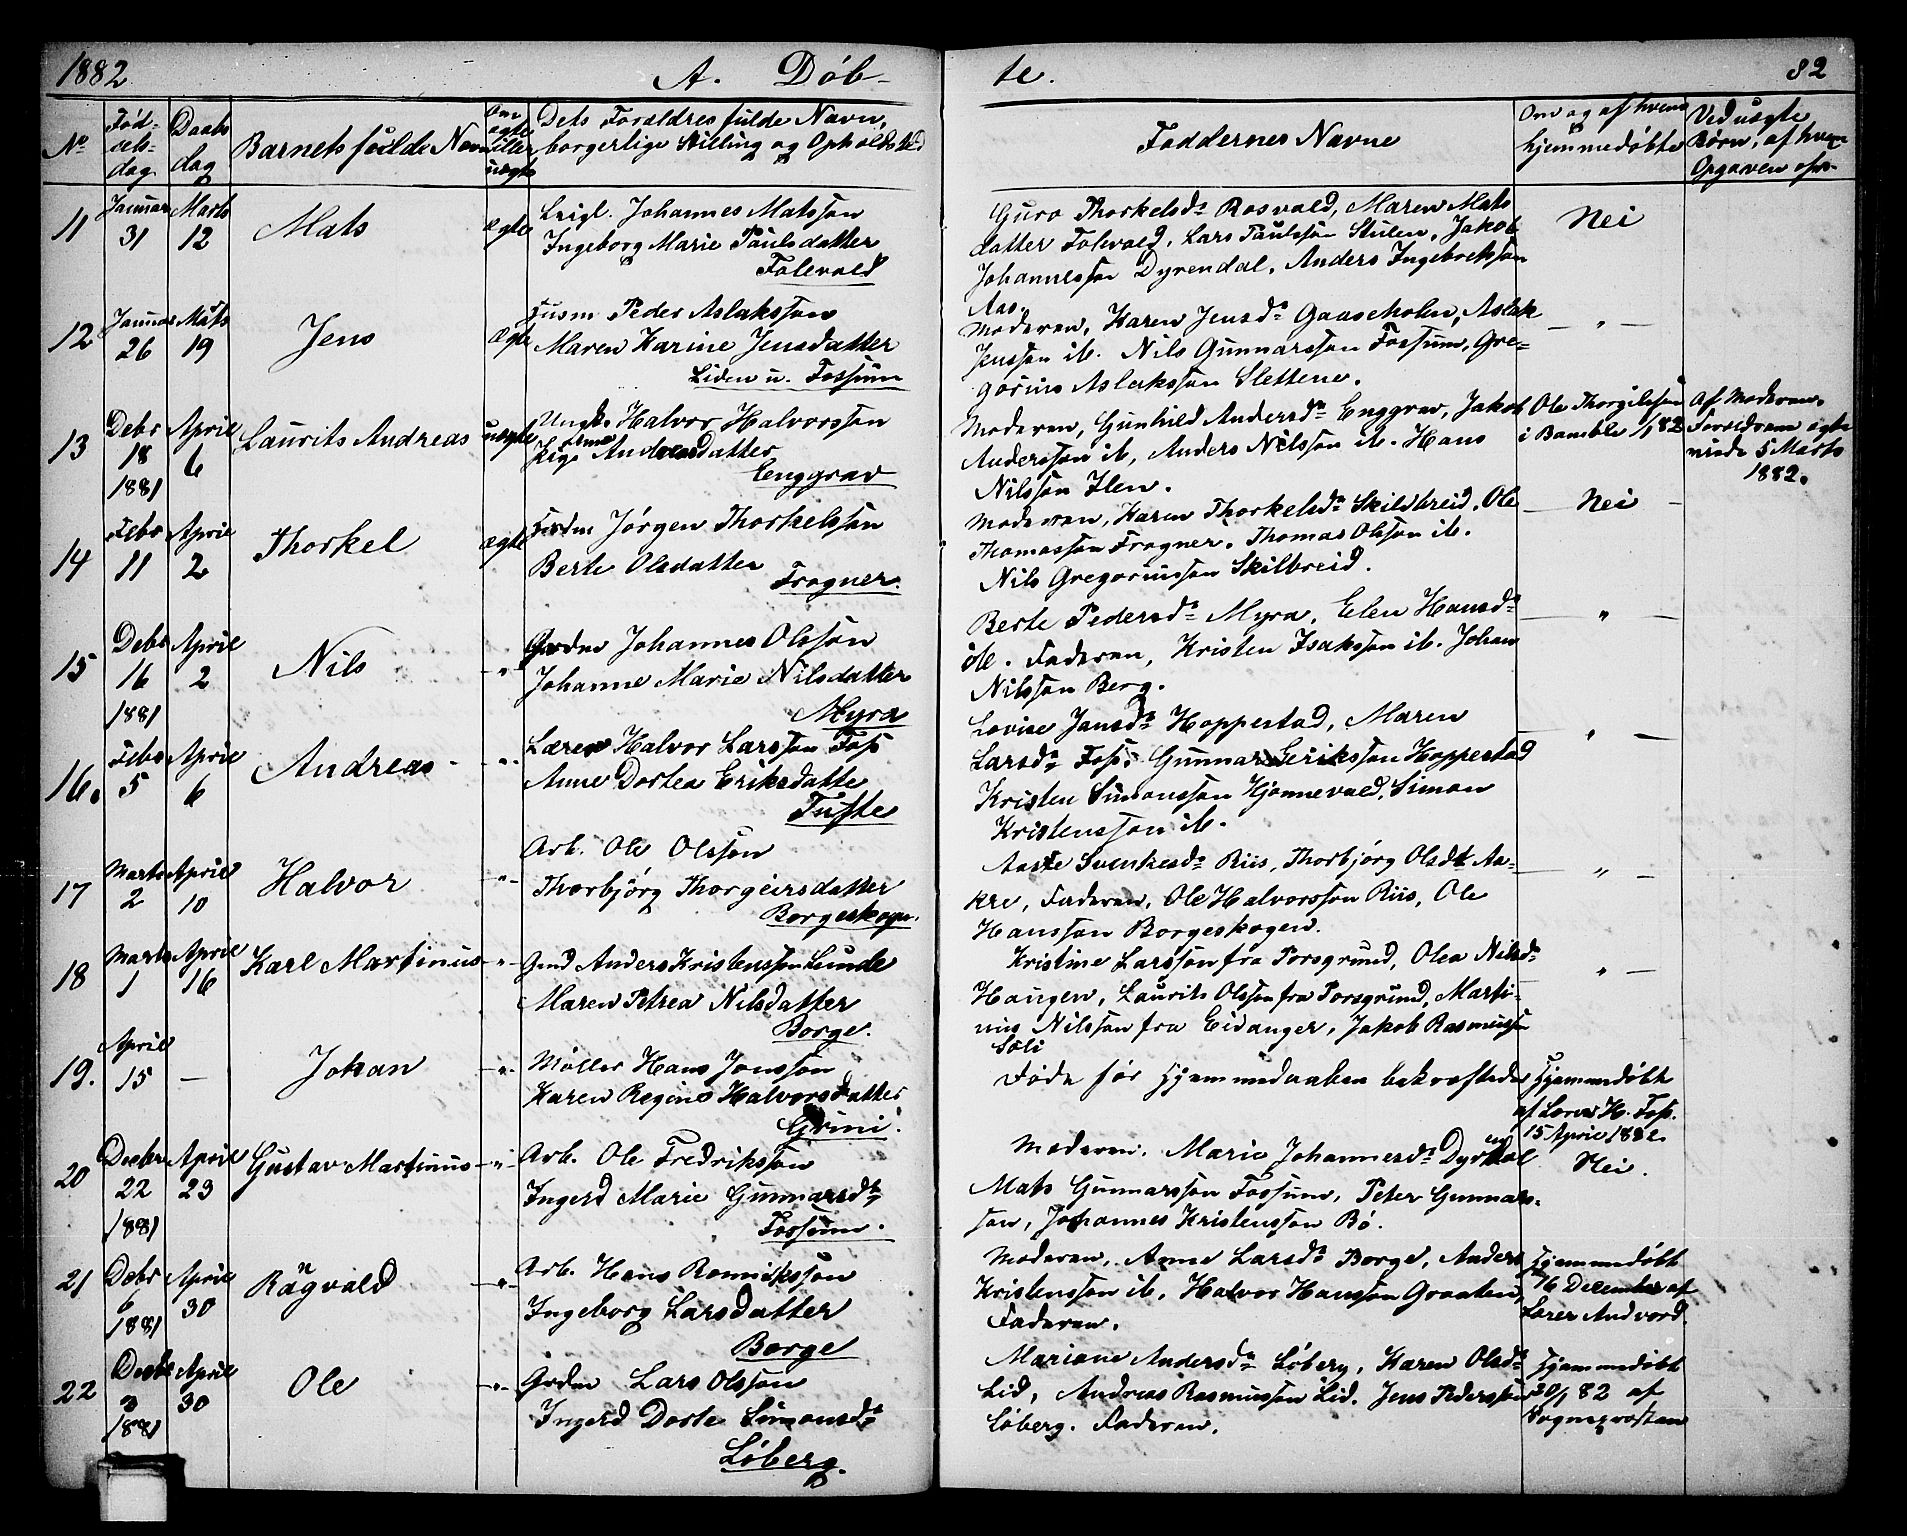 1882
A. Döb-
te.
82
No
Föd-
sels-
dag
Daabs
dag
Barnets fulde Navn
Om
ægte
eller
uægte
Dets Forældres fulde Navn,
borgerlige Stilling og Opholdsted
Faddernes Navne
Om og af hvem
hjemmedøbte
Ved uægte
Børn, af hvem
Opgaven
11
Januar
31
Marts
12
Mats
ægte
Johannes Matsson
Ingeborg Marie Paulsdatter
Folevald
Guro Thorkelsd. Rosvald, Maren Mats
datter Folevald, Lars Paulsson Stulen, Jakob
Johannesson Dyrendal, Anders Ingebretsson
Aas.
Nei
12
Januar
26
Mats
19
Jens
Ægte
Husm Peder Aslaksson
Maren Karine Jensdatter
Liden u. Fossum
Moderen, Karen Jensd. Gaaseholm, Aslak
Jensson ib. Nils Gunnarsson Fossum, Gre-
gorius Aslaksson Slettene.
— " —
13
Debr
18
1881
April
6
Laurits Andreas
uægte
Ungk. Halvor Halvorsson
Pige Anne Andersdatter
Enggrav
Moderen, Gunhild Andersd. Enggrav, Jakob
Andersson ib, Anders Nilsson ib. Hans
Nilsson Hen.
Ole Thorgilsson
i Bamble 1/1 82
Af Moderen.
Forældrene ægte
viede 5 Marts
1882.
14
Febr
11
April
2
Thorkel
ægte
Jörgen Thorkelsson
Berte Olsdatter
Frogner.
Moderen, Karen Thorkelsd. Skilbreid, Ole
Thomasson Frogner, Thomas Olsson ib.
Nils Gregoriusson Skilbreid.
— Nei —
15
Debr
16
1881
April
2
Nils
- " -
Grdm Johannes Olsson
Johanne Marie Nilsdatter
Myra
Berte Pedersd. Myra, Elen Hansd.
ib. Faderen, Kristen Isaksson ib. Johan
Nilsson Berg.
— " —
16.
Febr
5
April
6
Andreas
- " -
Lærer Halvor Larsson Foss
Anne Dortea Eriksdatte
Tufte
Lovise Jansd. Hoppestad, Maren
Larsd. Foss, Gunnar Eriksson Hoppestad
Kristen Simonsson Hjønnevald, Simon
Kristensson ib.
" —
17
Marts
2
April
10
Halvor
- " -
Arb. Ole Olsson
Thorbjörg Thorgeirsdatter
Borgeskogen.
Aaste Svenkesd. Riis, Thorbjörg Olsdt. Aa-
kre, Faderen, Ole Halvorsson Riis, Ole
Hansson Borgeskogen.
— " —
18
Marts
1
April
16
Karl Martinus
- " -
Gmd Anders Kristensson Lunde
Maren Petrea Nilsdatter
Borge.
Kristine Larsson fra Porsgrund, Olea Nilsd.
Haugen, Laurits Olsson fra Porsgrund, Marti-
nus Nilsson fra Eidanger, Jakob Rasmusson
Sôli
" —
19.
April
15
—
Johan
- " -
Møller Hans Jonsson
Karen Regine Halvorsdatter
Grini.
Döde för Hjemmedaaben bekræftedes
Hjemmedöbt
af Lærer H. Foss.
15 April 1882
20
Decbr
22
1881
April
23
Gustav Martinus
- " -
Arb. Ole Fredriksson
Ingerd Marie Gunnarsdt
Fossum.
Moderen. Marie Johannesd. Dyrendal
Mats Gunnarsson Fossum, Peter Gunnars-
son, Johannes Kristensson Bö.
Nei.
21
Decbr
6
1881
April
30
Ragnvald
- " -
Arb. Hans Romniksson
Ingeborg Larsdatter
Borge
Moderen, Anne Larsd. Borge, Anders
Kristensson ib, Halvor Hansson Graaten,
Faderen.
Hjemmedöbt
16 December af
Lærer Andvord.
22
Decbr
3
1881
April
30
Ole
- " -
Grdm Lars Olsson
Ingerd Dorte Simonsd.
Löberg.
Mariane Andersd. Löberg, Karen Olsd.
Lid, Andreas Rasmussen Lid, Jens Pedersson
Löberg. Faderen.
Hjemmedöbt
82 af
Sognepresten